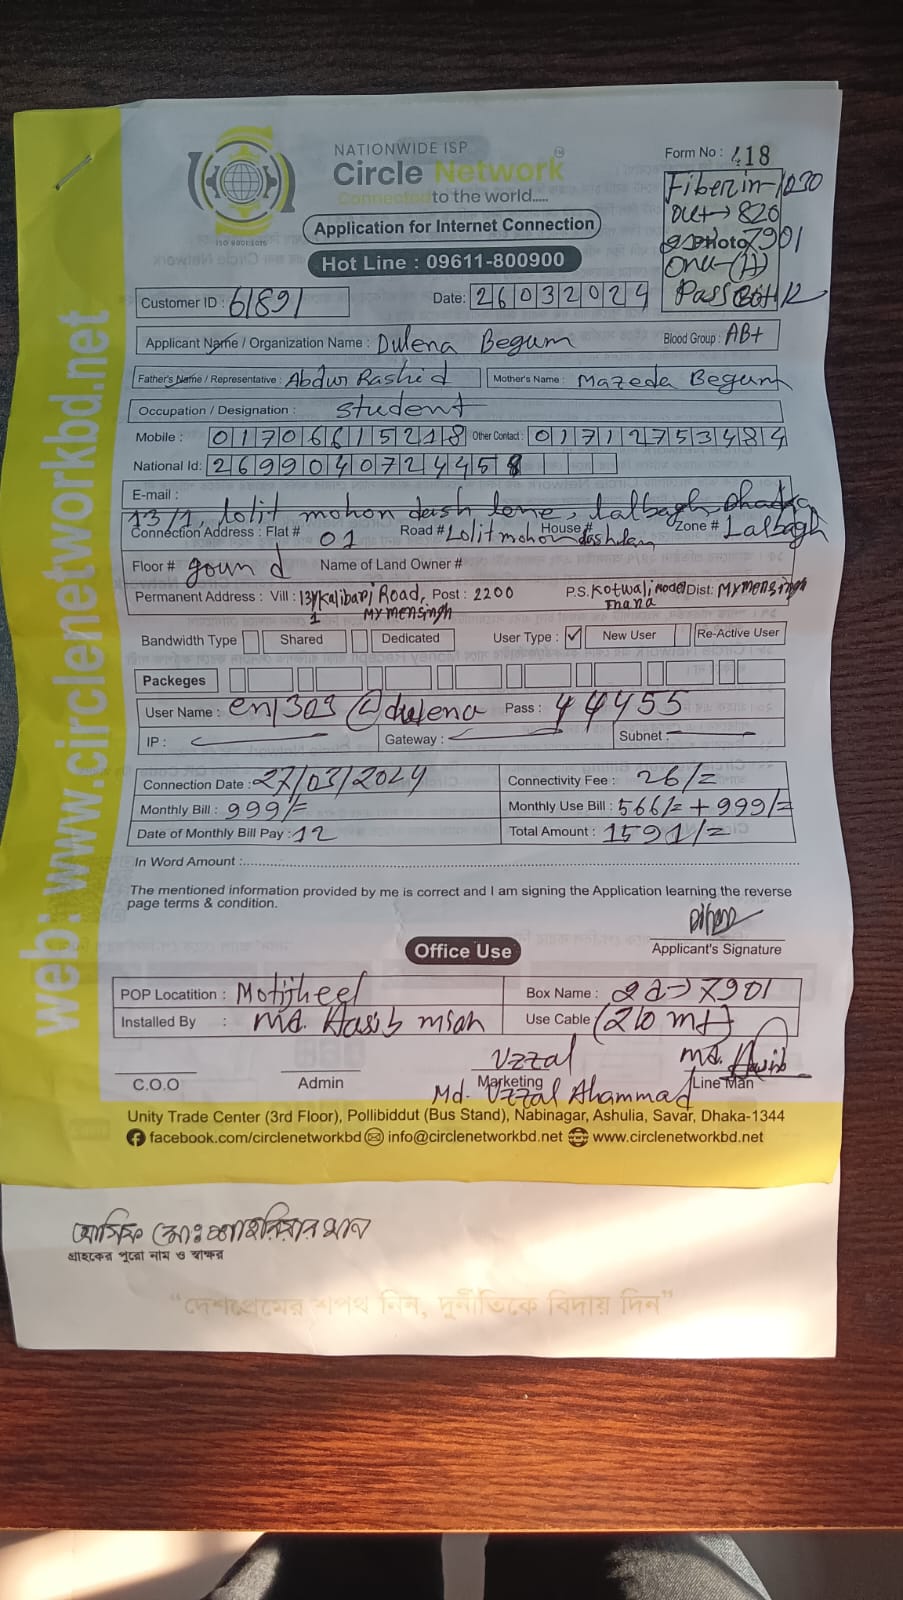 NATIONWIDE ISP
Circle Network
Connected to the world.....
ISO 9001:2015
Application for Internet Connection
Hot Line : 09611-800900
Form No : 418
Fiber in- 1030
out → 820
Photo 7901
onu-(A)
Pass
web: www.circlenetworkbd.net
Customer ID : 61891
Date: 26032024
Applicant Name / Organization Name : Dulena Begum
Blood Group : AB+
Father's Name / Representative : Abdur Rashid
Mother's Name : Mazeda Begum
Occupation / Designation : student
Mobile : 01706615218 Other Contact : 01712753484
National Id: 2699040724458
E-mail :
13/1, lolit mohon dash lene, lalbagh Dhaka
Connection Address : Flat # 01 Road # Lolit mohon dash House # Zone # Lalbagh
Floor # goun d Name of Land Owner #
Permanent Address : Vill : 13/1 Kalibari Road, Mymensingh Post : 2200 P.S. Kotwali Model Thana Dist: Mymensingh
Bandwidth Type Shared Dedicated User Type : ✓ New User Re-Active User
Packeges
User Name : en1303@dulena Pass : 44455
IP : Gateway : Subnet
Connection Date : 27/03/2024 Connectivity Fee : 26/=
Monthly Bill : 999/= Monthly Use Bill : 566/= + 999/=
Date of Monthly Bill Pay : 12 Total Amount : 1591/=
In Word Amount :
The mentioned information provided by me is correct and I am signing the Application learning the reverse
page terms & condition.
Applicant's Signature
Office Use
POP Locatition : Motijheel Box Name : 2d→7901
Installed By : Md. Hasib miah Use Cable (210 mt)
Uzzal Md. Hasib
C.O.O Admin Marketing Line Man
Md. Uzzal Ahammad
Unity Trade Center (3rd Floor), Pollibiddut (Bus Stand), Nabinagar, Ashulia, Savar, Dhaka-1344
facebook.com/circlenetworkbd info@circlenetworkbd.net www.circlenetworkbd.net
গ্রাহকের পুরো নাম ও স্বাক্ষর
“দেশপ্রেমের শপথ নিন, দুর্নীতিকে বিদায় দিন”